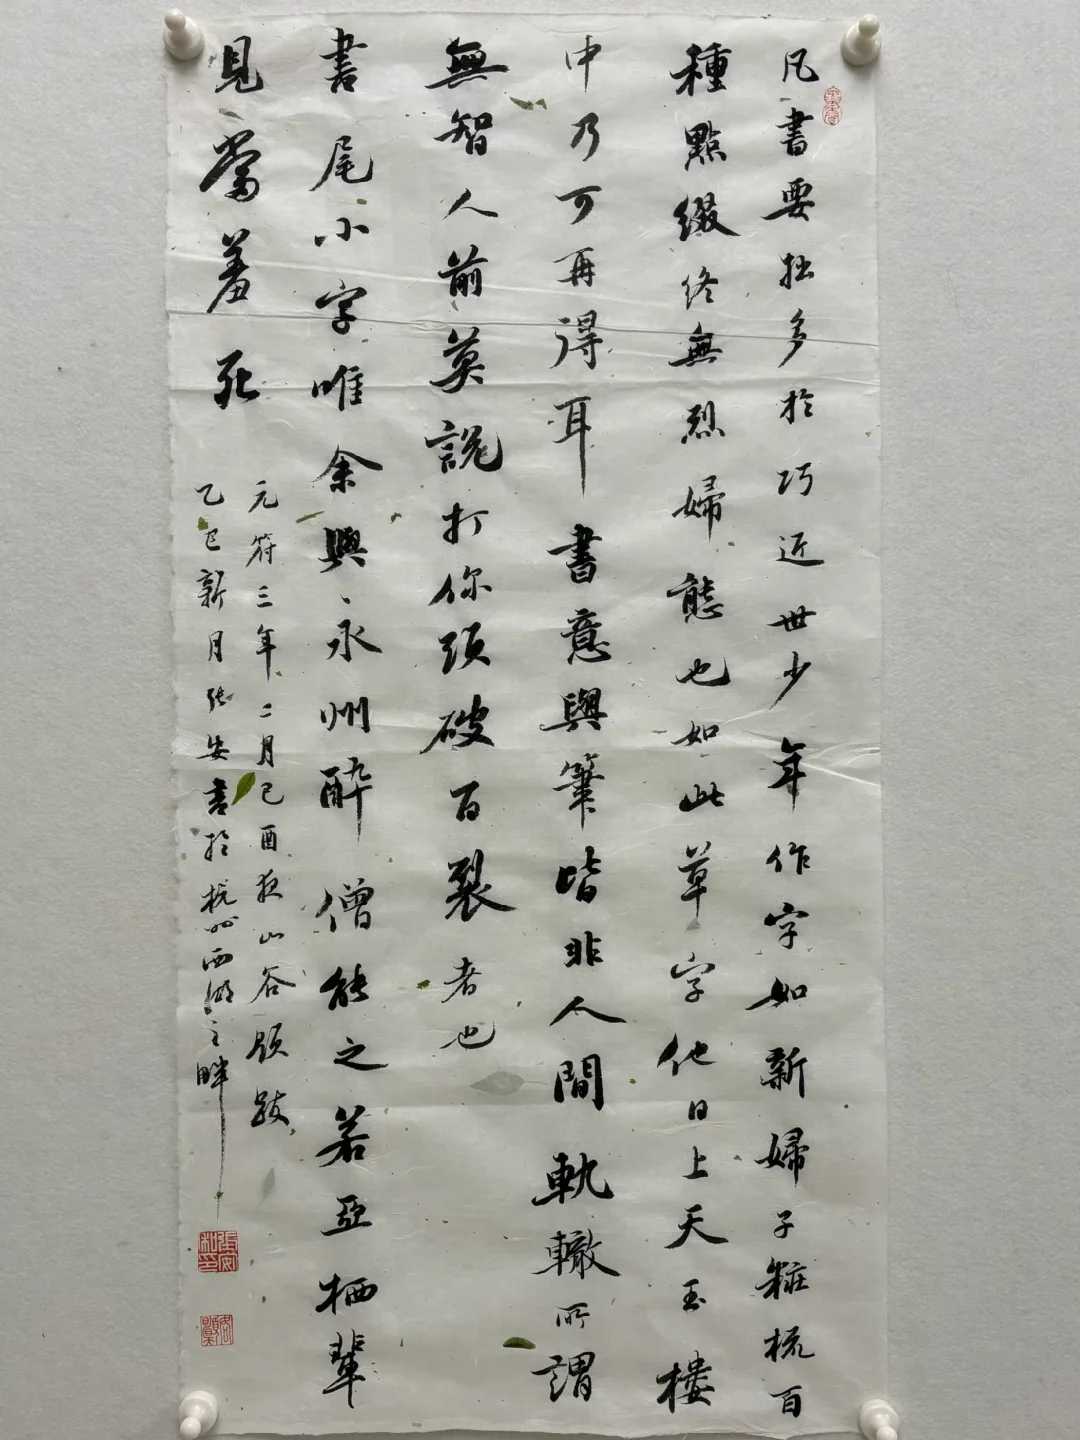 凡書要拙多於巧近世少年作字如新婦子粧梳百
種點綴終無烈婦態也如此草字他日上天玉樓
中乃可再得耳書意與筆皆非人間軌轍所謂
無智人前莫說打你頭破百裂者也
書尾小字唯余與永州醉僧能之若亞栖輩
見當羞死
元符三年二月己酉夜山谷題跋
乙巳新月張安書於杭州西湖之畔
張安和印